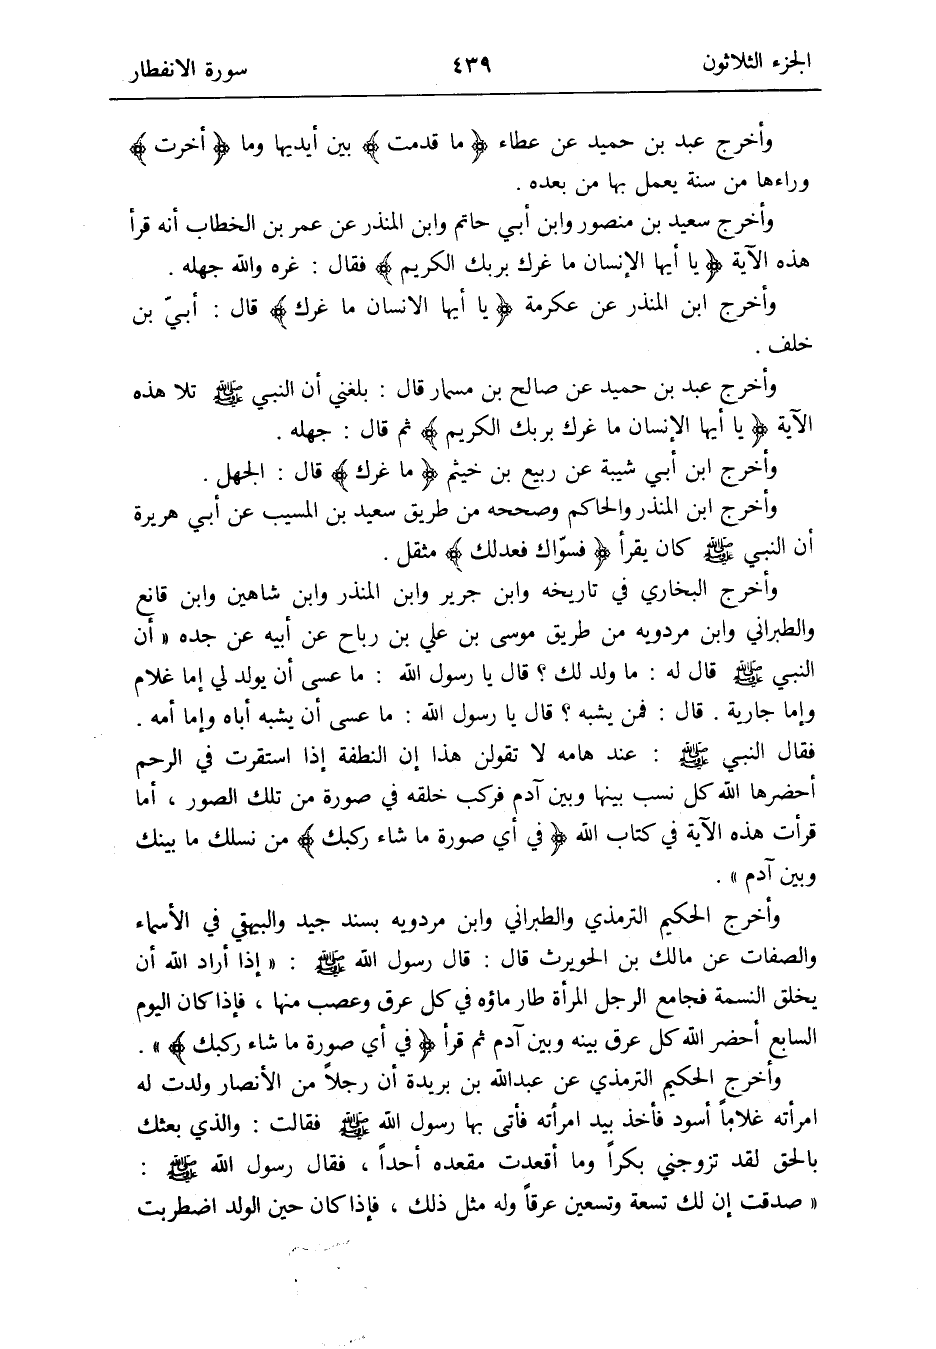 الجزء الثلاثون ٤٣٩ سورة الانفطار
وأخرج عبد بن حميد عن عطاء ﴿ ما قدمت ﴾ بين أيديها وما ﴿ أخرت ﴾
وراءها من سنة يعمل بها من بعده .
وأخرج سعيد بن منصور وابن أبي حاتم وابن المنذر عن عمر بن الخطاب أنه قرأ
هذه الآية ﴿ يا أيها الإنسان ما غرك بربك الكريم ﴾ فقال : غره والله جهله .
وأخرج ابن المنذر عن عكرمة ﴿ يا أيها الانسان ما غرك ﴾ قال : أبيّ بن
خلف .
وأخرج عبد بن حميد عن صالح بن مسمار قال : بلغني أن النبي ﷺ تلا هذه
الآية ﴿ يا أيها الإنسان ما غرك بربك الكريم ﴾ ثم قال : جهله .
وأخرج ابن أبي شيبة عن ربيع بن خيثم ﴿ ما غرك ﴾ قال : الجهل .
وأخرج ابن المنذر والحاكم وصححه من طريق سعيد بن المسيب عن أبي هريرة
أن النبي ﷺ كان يقرأ ﴿ فسوّاك فعدلك ﴾ مثقل .
وأخرج البخاري في تاريخه وابن جرير وابن المنذر وابن شاهين وابن قانع
والطبراني وابن مردويه من طريق موسى بن علي بن رباح عن أبيه عن جده « أن
النبي ﷺ قال له : ما ولد لك ؟ قال يا رسول الله : ما عسى أن يولد لي إما غلام
وإما جارية . قال : فمن يشبه ؟ قال يا رسول الله : ما عسى أن يشبه أباه وإما أمه .
فقال النبي ﷺ : عند هامه لا تقولن هذا إن النطفة إذا استقرت في الرحم
أحضرها الله كل نسب بينها وبين آدم فركب خلقه في صورة من تلك الصور ، أما
قرأت هذه الآية في كتاب الله ﴿ في أي صورة ما شاء ركبك ﴾ من نسلك ما بينك
وبين آدم » .
وأخرج الحكيم الترمذي والطبراني وابن مردويه بسند جيد والبيهقي في الأسماء
والصفات عن مالك بن الحويرث قال : قال رسول الله ﷺ : « إذا أراد الله أن
يخلق النسمة فجامع الرجل المرأة طار ماؤه في كل عرق وعصب منها ، فإذا كان اليوم
السابع أحضر الله كل عرق بينه وبين آدم ثم قرأ ﴿ في أي صورة ما شاء ركبك ﴾ » .
وأخرج الحكيم الترمذي عن عبدالله بن بريدة أن رجلاً من الأنصار ولدت له
امرأته غلاماً أسود فأخذ بيد امرأته فأتى بها رسول الله ﷺ فقالت : والذي بعثك
بالحق لقد تزوجني بكراً وما أقعدت مقعده أحداً ، فقال رسول الله ﷺ :
« صدقت إن لك تسعة وتسعين عرقاً وله مثل ذلك ، فإذا كان حين الولد اضطربت